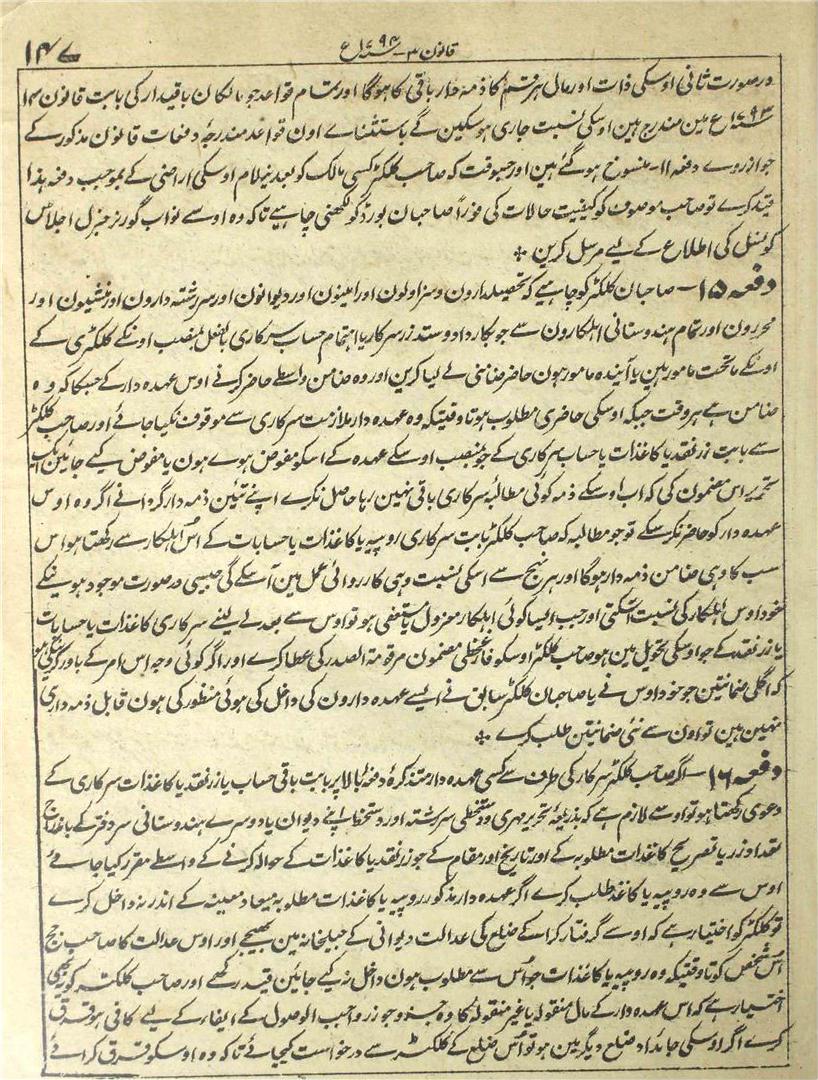 ۱۴۷
قانون ۳ - ۹۴ ۱۷ ء
درصورت ثانی اوسکی ذات اور مال ہر قسم کا ذمہ دار باقی کا ہوگا اور تمام قواعد جو مالکان باقیدار کی بابت قانون ۱۴
۹۳ ۱۷ ء مین مندرج ہین اوسکی نسبت جاری ہو سکین گے باستثناے اون قواعد مندرجۂ دفعات قانون مذکور کے
جو ازروے دفعہ ۱۱- منسوخ ہو گئے ہین اور جسوقت کہ صاحب کلکٹر کسی مالک کو بعد نیلام اوسکی اراضی کے بموجب دفعہ ہذا
قید کرے تو صاحب موصوف کو کیفیت حالات کی فوراً صاحبان بورڈ کو لکھنی چاہیے تاکہ وہ اوسے نواب گورنر جنرل اجلاس
کونسل کی اطلاع کے لیے مرسل کرین ٭
دفعہ ۱۵- صاحبان کلکٹر کو چاہیے کہ تحصیلدارون و سزاولون اور امینون اور دیوانون اور سررشتہ دارون اور منشیون اور
محررون اور تمام ہندوستانی اہلکارون سے جو بکار داد و ستد زر سرکار یا اہتمام حساب سرکاری بالفعل بمنصب اونکے کلکٹری کے
اونکے ماتحت مامور ہین یا آیندہ مامور ہون حاضر ضامنی لے لیا کرین اور وہ ضامن واسطے حاضر کرنے اوس عہدہ دار کے جسکا کہ وہ
ضامن ہے ہر وقت جبکہ اوسکی حاضری مطلوب ہو تا وقتیکہ وہ عہدہ دار ملازمت سرکاری سے موقوف نکیا جائے اور صاحب کلکٹر
سے بابت زر نقد یا کاغذات یا حساب سرکاری کے جو بمنصب اوسکے عہدہ کے اسکو مفوض ہوے ہون یا مفوض کیے جائین ایک
تحریر اس مضمون کی کہ اب اوسکے ذمہ کوئی مطالبۂ سرکاری باقی نہین رہا حاصل نکرے اپنے تئین ذمہ دار گردانے اگر وہ اوس
عہدہ دار کو حاضر نکر سکے تو جو مطالبہ کہ صاحب کلکٹر بابت سرکاری روپیہ یا کاغذات یا حسابات کے اس اہلکار سے رکھتا ہو اس
سب کا وہی ضامن ذمہ دار ہوگا اور ہر نہج سے اسکی نسبت وہی کارروائی عمل مین آسکے گی جیسی درصورت موجود ہونیکے
خود اوس اہلکار کی نسبت آسکتی اور جب ایسا کوئی اہلکار معزول یا مستعفی ہو تو اوس سے بعد لے لینے سرکاری کاغذات یا حسابات
یا زر نقد کے جو اوسکی تحویل مین ہو صاحب کلکٹر اوسکو فارغخطی مضمون مرقومۃ الصدر کی عطا کرے اور اگر کوئی وجہ اس امر کے باور کرنیکی ہو
کہ اگلی ضمانتین جو خود اوس نے یا صاحبان کلکٹر سابق نے ایسے عہدہ دارون کی داخل کی ہوئی منظور کی ہون قابل ذمہ داری
نہین ہین تو اون سے نئی ضمانتین طلب کرے ٭
دفعہ ۱۶- اگر صاحب کلکٹر سرکار کی طرف سے کسی عہدہ دار متذکرۂ دفعۂ بالا پر بابت باقی حساب یا زر نقد یا کاغذات سرکاری کے
دعوی رکھتا ہو تو اوسے لازم ہے کہ بذریعۂ تحریر مہری و دستخطی سررشتہ اور دستخط اپنے دیوان یا دوسرے ہندوستانی سردفتر کے باندراج
تعداد زر یا تصریح کاغذات مطلوبہ کے اور تاریخ اور مقام کے جو زر نقد یا کاغذات کے حوالہ کرنے کے واسطے مقرر کیا جاے
اوس سے وہ روپیہ یا کاغذ طلب کرے اگر عہدہ دار مذکور روپیہ یا کاغذات مطلوبہ میعاد معینہ کے اندر نہ داخل کرے
تو کلکٹر کو اختیار ہے کہ اوسے گرفتار کراکے ضلع کی عدالت دیوانی کے جیلخانہ مین بھیجے اور اوس عدالت کا صاحب جج
اس شخص کو تا وقتیکہ وہ روپیہ یا کاغذات جو اس سے مطلوب ہون داخل نہ کیے جائین قید رکھے اور صاحب کلکٹر کو یہ بھی
اختیار ہے کہ اس عہدہ دار کے مال منقولہ یا غیر منقولہ کا وہ جزو جو زر واجب الوصول کے ایفاء کے لیے کافی ہو قرق
کرے اگر اوسکی جائداد ضلع دیگر مین ہو تو اس ضلع کے کلکٹر سے درخواست کیجائے تاکہ وہ اوسکو قرق کرائے